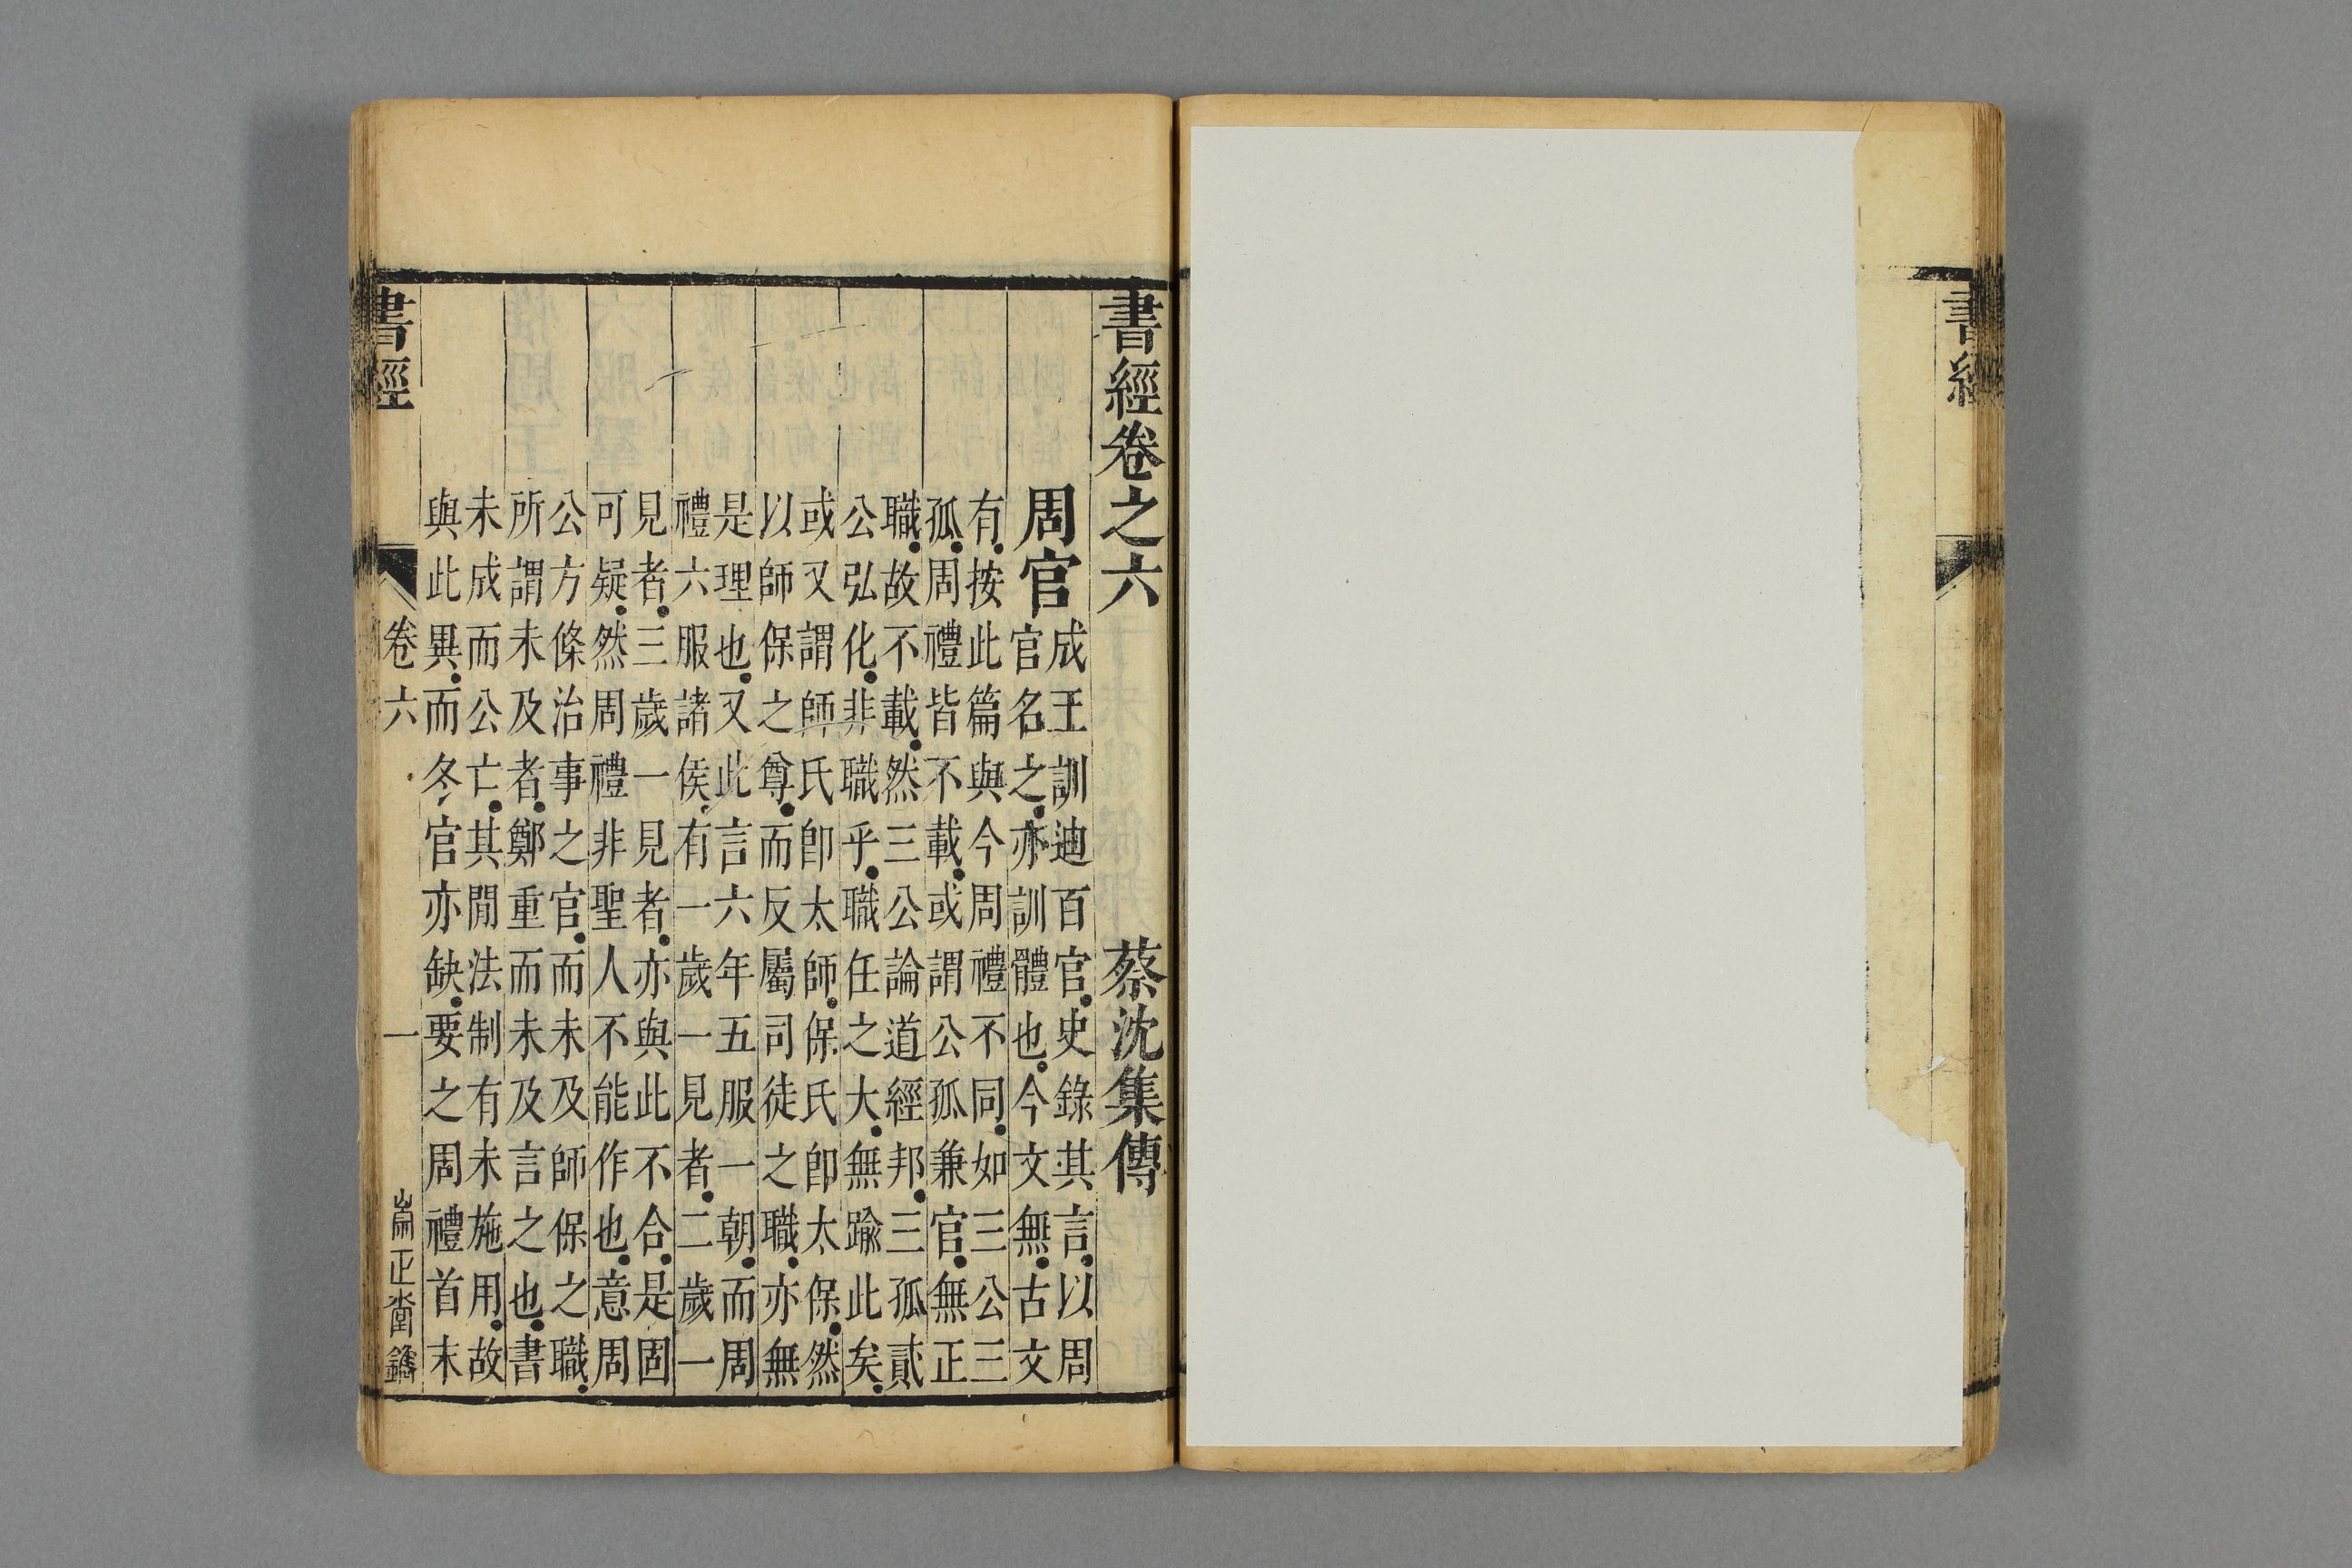 書經卷之六 蔡沈集傳
周官
成王訓迪百官史錄其言以周
官名之亦訓體也今文無古文
有按此篇與今周禮不同如三公三
孤周禮皆不載或謂公孤兼官無正
職故不載然三公論道經邦三孤貳
公弘化非職乎職任之大無踰此矣
或又謂師氏卽太師保氏卽太保然
以師保之尊而反屬司徒之職亦無
是理也又此言六年五服一朝而周
禮六服諸侯有一歲一見者二歲一
見者三歲一見者亦與此不合是固
可疑然周禮非聖人不能作也意周
公方條治事之官而未及師保之職
所謂未及者鄭重而未及言之也書
未成而公亡其閒法制有未施用故
與此異而冬官亦缺要之周禮首末
書經 卷六 一 崇正堂鐫
書經